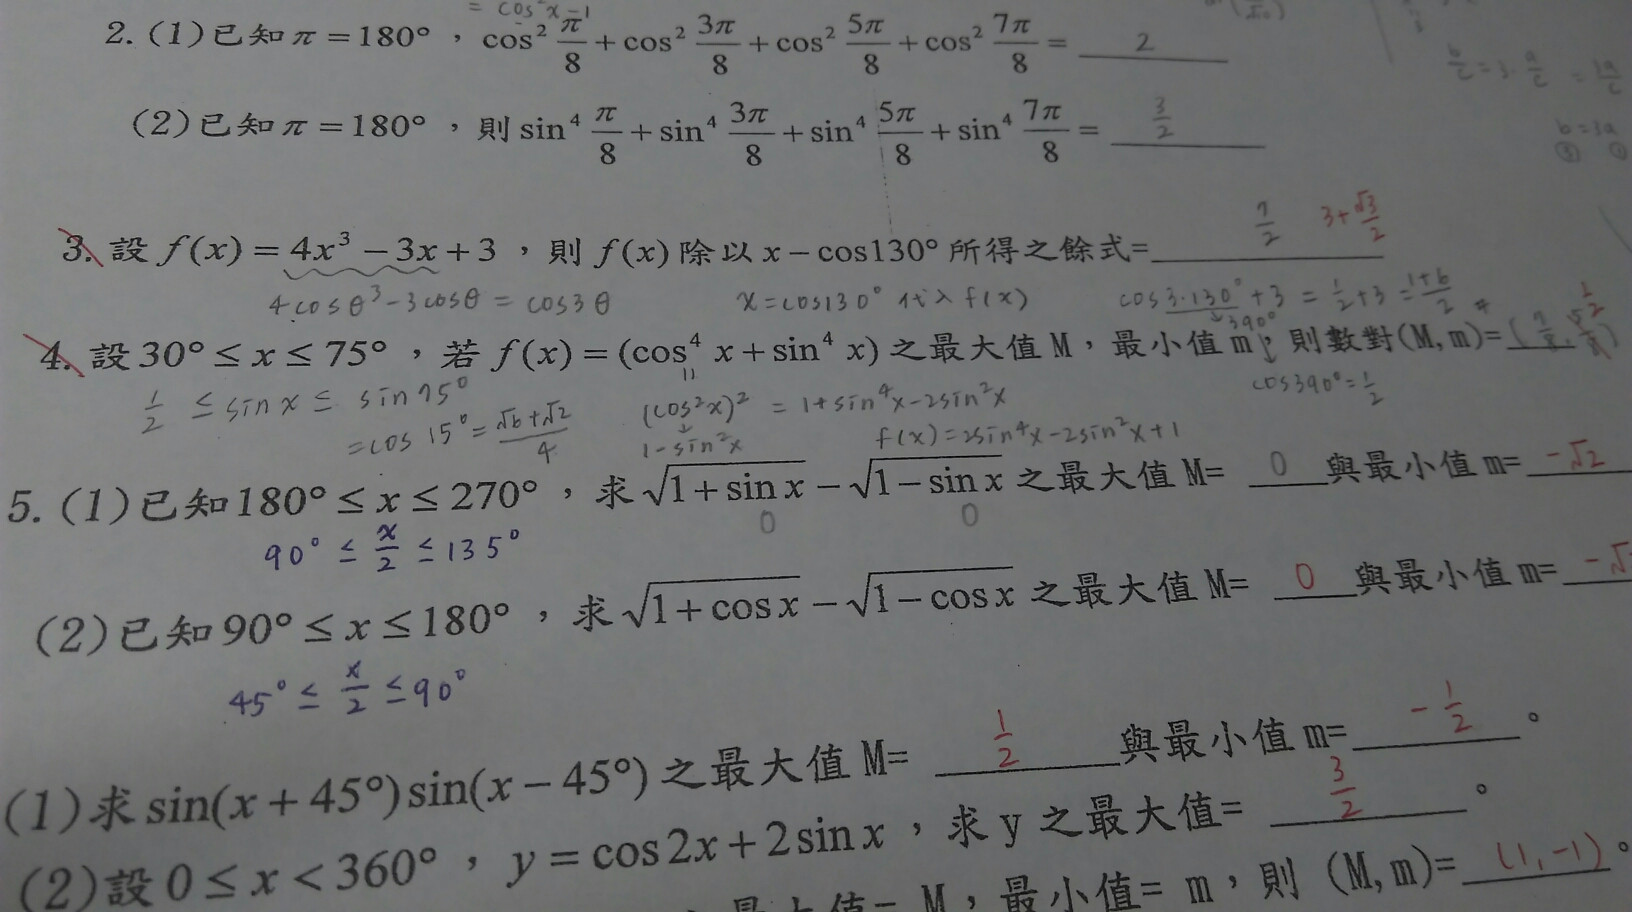 = cos²x-1
2. (1) 已知 π = 180° , cos² π/8 + cos² 3π/8 + cos² 5π/8 + cos² 7π/8 = 2
(2) 已知 π = 180° , 則 sin⁴ π/8 + sin⁴ 3π/8 + sin⁴ 5π/8 + sin⁴ 7π/8 = 3/2
b/c = 3·a/c = 3a/c
b=3a
7/2 3+√3/2
3. 設 f(x) = 4x³ − 3x + 3 , 則 f(x) 除以 x − cos130° 所得之餘式=
4cosθ³-3cosθ = cos3θ x=cos130° 代入f(x) cos3·130°+3 = 1/2+3 = 1+6/2
390°
4. 設 30° ≤ x ≤ 75° , 若 f(x) = (cos⁴ x + sin⁴ x) 之最大值 M , 最小值 m , 則數對(M, m)=
1/2 ≤ sinx ≤ sin75° (cos²x)² = 1+sin⁴x-2sin²x cos390°=1/2
=cos15°=√6+√2/4 1-sin²x f(x)=2sin⁴x-2sin²x+1
5. (1) 已知 180° ≤ x ≤ 270° , 求 √1+sin x − √1−sin x 之最大值 M= 0 與最小值 m= -√2
0 0
90° ≤ x/2 ≤ 135°
(2) 已知 90° ≤ x ≤ 180° , 求 √1+cos x − √1−cos x 之最大值 M= 0 與最小值 m=
45° ≤ x/2 ≤ 90°
(1) 求 sin(x + 45°)sin(x − 45°) 之最大值 M= 1/2 與最小值 m= -1/2 。
(2) 設 0 ≤ x < 360° , y = cos 2x + 2 sin x , 求 y 之最大值= 3/2 。
最大值= M , 最小值= m , 則 (M, m)= (1,-1) 。